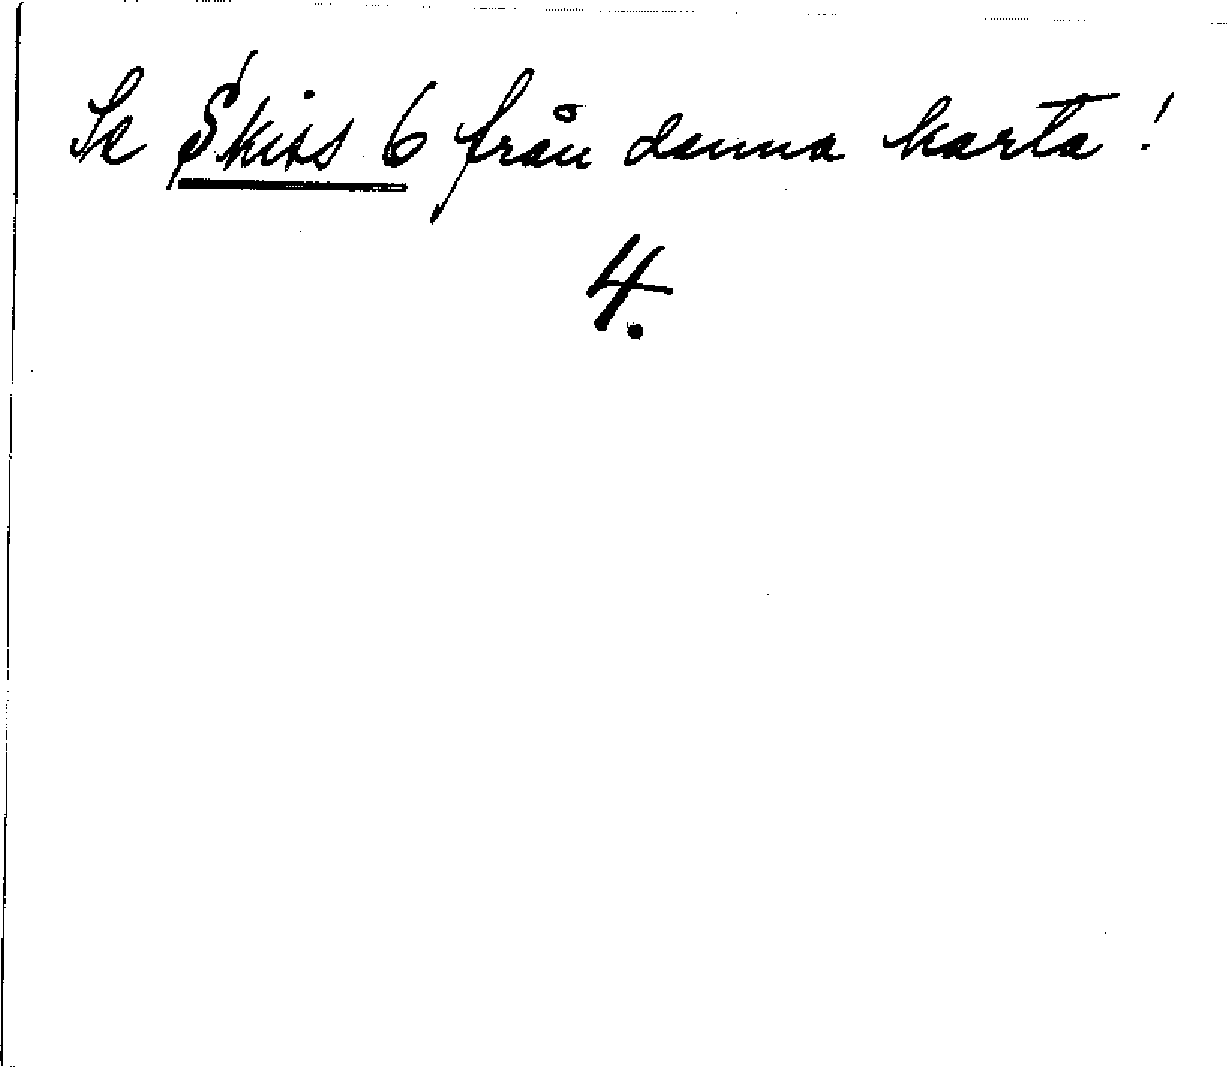 Se Skiss 6 från denna karta!
4.